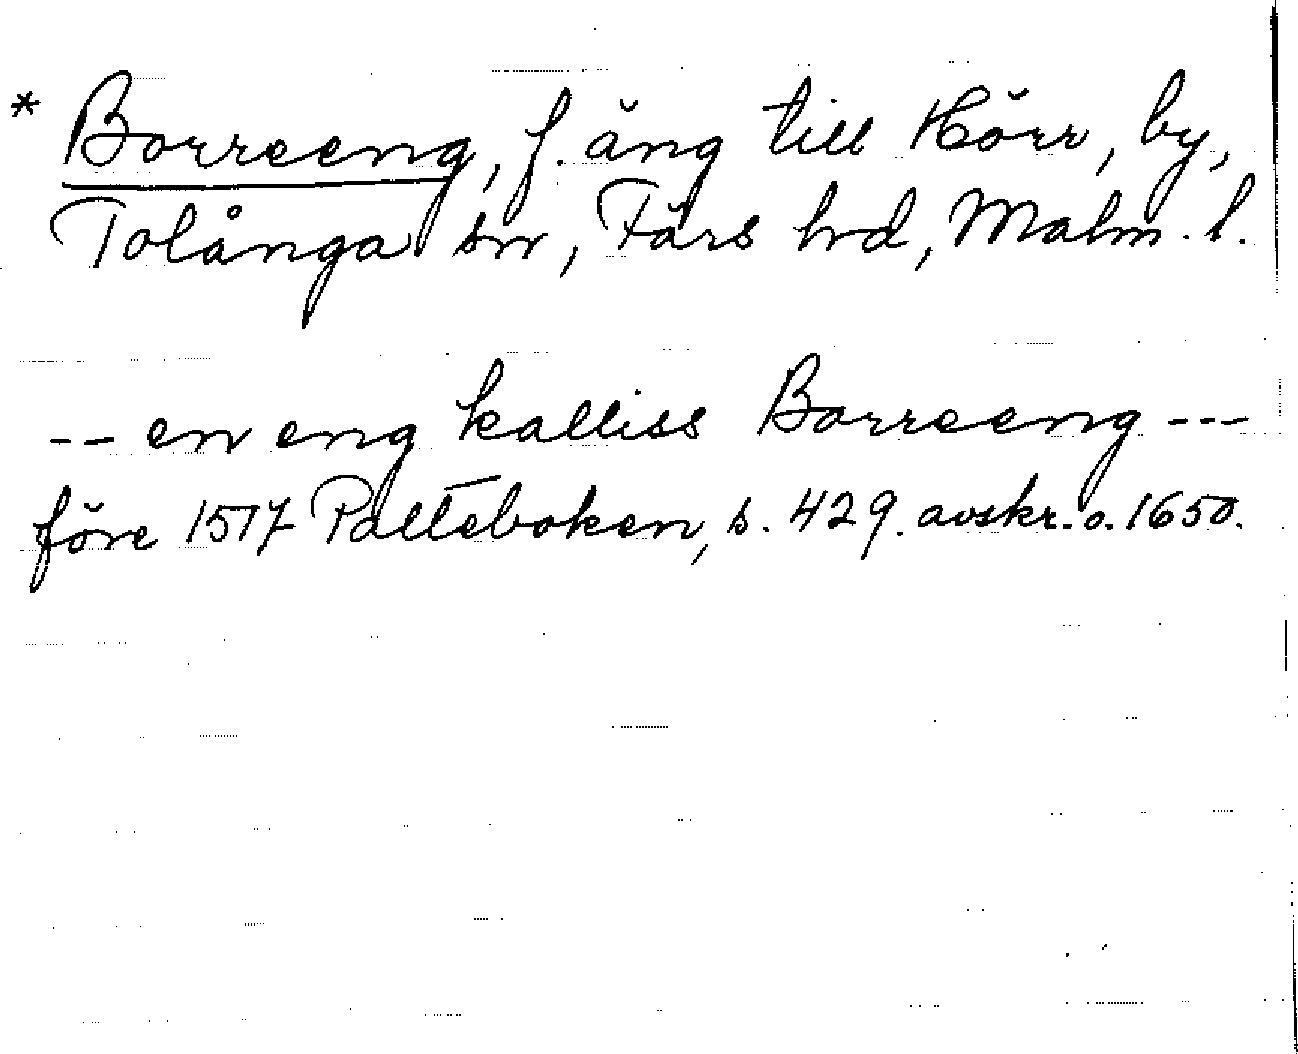 * Borreeng, f. äng till Hörr, by,
Tolånga sn, Färs hd, Malm. l.
-- en eng kalliss Borreeng ---
före 1517 Palteboken, s. 429. avskr. o. 1650.